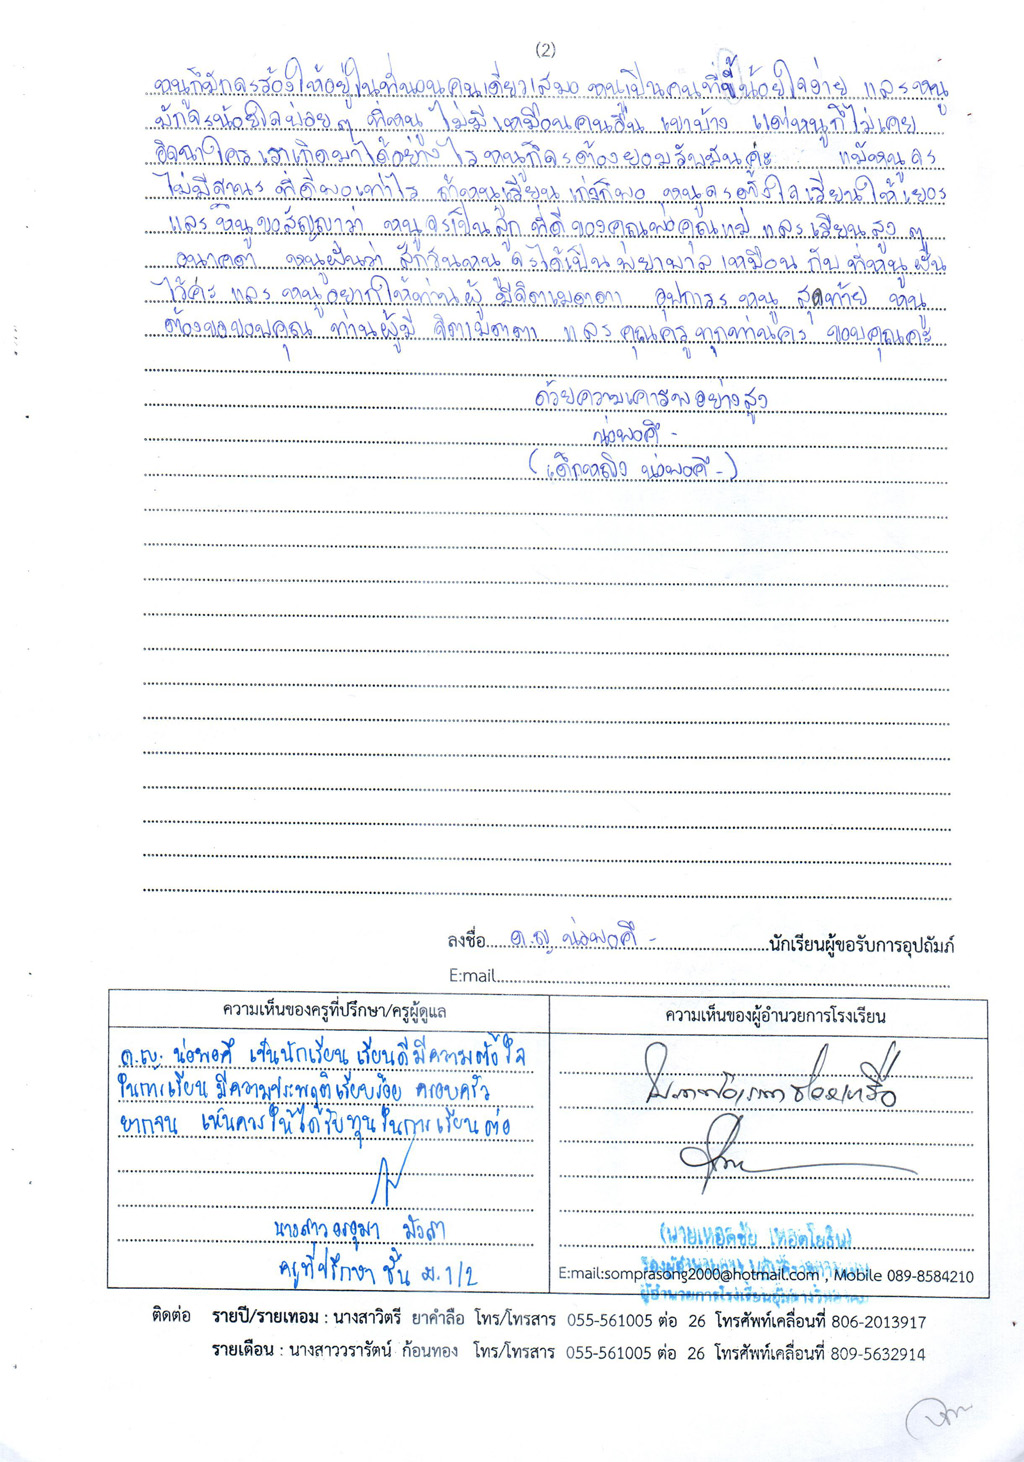 (2)
หนูก็มักจะร้องไห้อยู่ในที่นอนคนเดียวเสมอ หนูเป็นคนที่ขี้น้อยใจง่าย และหนู
มักจะน้อยใจบ่อยๆ ที่หนูไม่มีเหมือนคนอื่น เขาบ้าง แต่หนูก็ไม่เคย
อิจฉาใคร เราเกิดมาได้อย่างไร หนูก็จะต้องยอมรับมันค่ะ แม้หนูจะ
ไม่มีฐานะ ที่ดีพอเท่าไร ถ้าหนูเรียน เก่งก็พอ หนูจะตั้งใจเรียนให้เยอะ
และหนูขอสัญญาว่า หนูจะเป็นลูก ที่ดีของคุณพ่อคุณแม่ และเรียนสูง ๆ
อนาคต หนูฝันว่า สักวันหนู จะได้เป็น พยาบาล เหมือน กับ ที่หนู ฝัน
ไว้ค่ะ และ หนูอยากให้ท่านผู้ มีจิตเมตตา อุปการะ หนู สุดท้าย หนู
ต้องขอขอบคุณ ท่านผู้มี จิตเมตตา และ คุณครู ทุกท่านคะ ขอบคุณค่ะ
ด้วยความเคารพอย่างสูง
น่อพอคี -
(เด็กหญิง น่อพอคี -)
ลงชื่อ ด.ญ น่อพอคี - นักเรียนผู้ขอรับการอุปถัมภ์
E:mail
ความเห็นของครูที่ปรึกษา/ครูผู้ดูแล
ด.ญ. น่อพอคี เป็นนักเรียน เรียนดีมีความตั้งใจ
ในการเรียน มีความประพฤติเรียบร้อย ครอบครัว
ยากจน เห็นควรให้ได้รับทุนในการเรียนต่อ
นางสาว อรอุมา
ครูที่ปรึกษา ชั้น ม.1/2
ความเห็นของผู้อำนวยการโรงเรียน
(นายเทอดชัย เทอดโยธิน)
E:mail:somprasong2000@hotmail.com , Mobile 089-8584210
ติดต่อ รายปี/รายเทอม : นางสาวิตรี ยาคำลือ โทร/โทรสาร 055-561005 ต่อ 26 โทรศัพท์เคลื่อนที่ 806-2013917
รายเดือน : นางสาววรารัตน์ ก้อนทอง โทร/โทรสาร 055-561005 ต่อ 26 โทรศัพท์เคลื่อนที่ 809-5632914